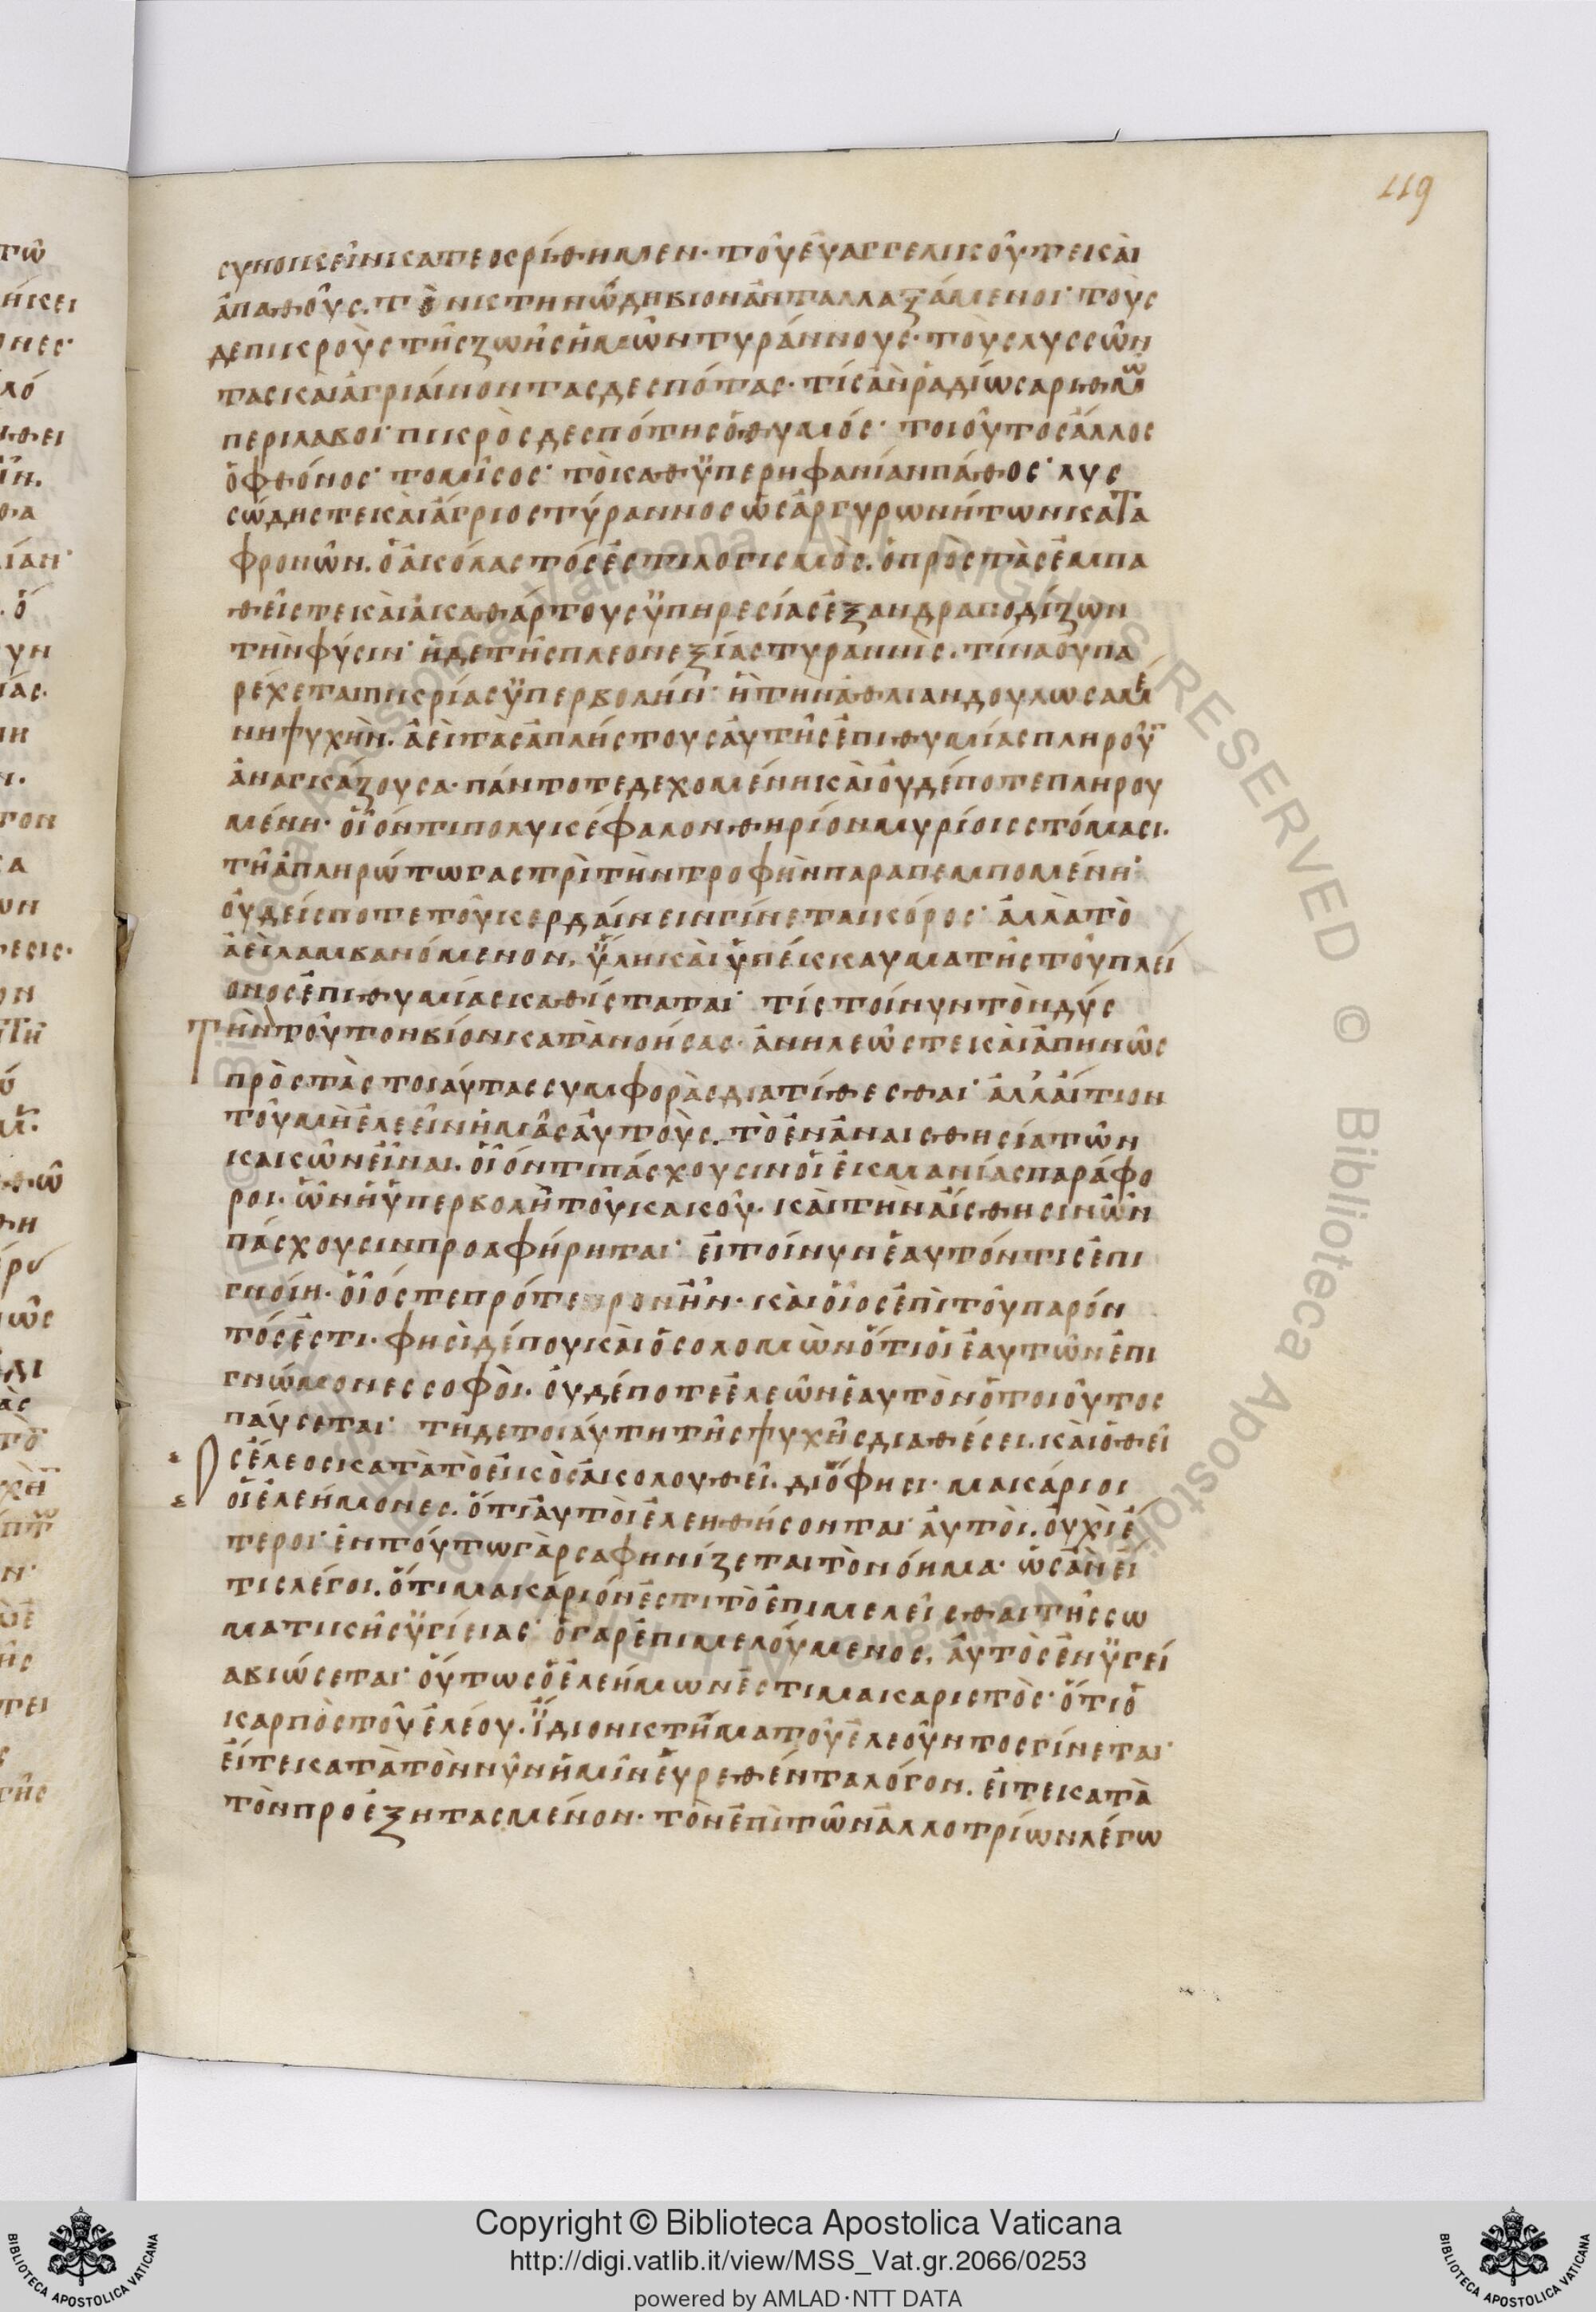 119
συνοικεῖν κατεκρίθημεν· τοῦ εὐαγγελικοῦ τε καὶ
ἀπαθοῦς. τὸν κτηνώδη βίον ἀνταλλαξάμενοι· τοὺς
δὲ πικροὺς τῆς ζωῆς ἡμῶν τυράννους· τοὺς λυσσῶν
τας καὶ ἀγριαίνοντας δεσπότας· τίς ἂν ῥαδίως ἀριθμῶ
περιλάβοι· πικρὸς δεσπότης ὁ θυμός· τοιοῦτος ἄλλος
ὁ φθόνος· τὸ μῖσος· τὸ καθ ὑπερηφανίαν πάθος· λυς
σώδης τε καὶ ἄγριος τύραννος ὡς ἀργυρωνήτων κατα
φρονῶν. ὁ ἀκόλαστός ἐστι λογισμὸς. ὁ πρὸς τὰς ἐμπα
θεῖς τε καὶ ἀκαθάρτους ὑπηρεσίας ἐξανδραποδίζων
τὴν φύσιν· ἡ δὲ τῆς πλεονεξίας τυραννὶς. τίνα οὐ πα
ρέχεται πικρίας ὑπερβολήν· ἣ τὴν ἀθλίαν δουλωσαμέ
νη ψυχὴν. ἀεὶ τὰς ἀπλήστους αὐτῆς ἐπιθυμίας πληροῦ
ἀναγκάζουσα· πάντοτε δεχομένη καὶ οὐδέποτε πληρου
μένη· οἷόν τι πολυκέφαλον θηρίον μυρίοις στόμασι.
τῆ ἀπληρώτω γαστρὶ τὴν τροφὴν παραπεμπομένη·
οὗ δείς ποτε τοῦ κερδαίνειν γίνεται κόρος· ἀλλὰ τὸ
ἀεὶ λαμβανόμενον, ὕλη καὶ ὑπέκκαυμα τῆς τοῦ πλεί
ονος ἐπιθυμίας καθίσταται· τίς τοίνυν τὸν δύς
τηντοῦτον βίον κατανοήσας· ἀνηλεῶς τε καὶ ἀπηνῶς
πρὸς τὰς τοιαύτας συμφορὰς διατίθεσθαι· ἀλλ αἴτιον
τοῦ μὴ ἐλεεῖν ἡμᾶς αὐτοὺς. τὸ ἐν ἀναισθησία τῶν
κακῶν εἶναι. οἷόν τι πάσχουσιν οἱ ἐκ μανίας παράφο
ροι. ὧν ἡ ὑπερβολὴ τοῦ κακοῦ. καὶ τὴν αἴσθησιν ὧν
πάσχουσιν προαφήρηται· εἰ τοίνυν ἑαυτόν τις ἐπι
γνοίη· οἷός τε πρότερον ἦν· καὶ οἷος ἐπὶ τοῦ παρόν
τός ἐστι. φησὶ δέ που καὶ ὁ σολομὼν ὅτι οἱ ἑαυτῶν ἐπι
γνώμονες σοφοὶ. οὐδέποτε ἐλεῶν ἑαυτὸν ὁ τοιοῦτος
παύσεται· τῆ δὲ τοιαύτη τῆς ψυχῆς διαθέσει. καὶ ὁ θεῖ
ος ἔλεος κατὰ τὸ εἰκὸς ἀκολουθεῖ. διό φησι· μακάριοι
οἱ ἐλεήμονες. ὅτι αὐτοὶ ἐλεηθήσονται· αὐτοὶ. οὐχὶ ἕ
τεροι· ἐν τούτω γὰρ σαφηνίζεται τὸ νόημα· ὡς ἂν εἴ
τις λέγοι. ὅτι μακάριόν ἐστι τὸ ἐπιμελεῖσθαι τῆς σω
ματικῆς ὑγίειας· ὁ γαρ ἐπιμελούμενος, αὐτὸς ἐν ὑγεί
α βιώσεται· οὕτως ὁ ἐλεήμων ἐστι μακαριστὸς· ὅτι ὁ
καρπὸς τοῦ ἐλέου. ἴδιον κτῆμα τοῦ ἐλεοῦντος γίνεται·
εἴτε κατὰ τὸν νῦν ἡμῖν εὑρεθέντα λόγον. εἴτε κατὰ
τὸν προεξητασμένον· τὸν ἐπὶ τῶν ἀλλοτρίων λέγω
Copyright © Biblioteca Apostolica Vaticana
http://digi.vatlib.it/view/MSS_Vat.gr.2066/0253
powered by AMLAD·NTT DATA
BIBLIOTECA APOSTOLICA VATICANA
BIBLIOTECA APOSTOLICA VATICANA